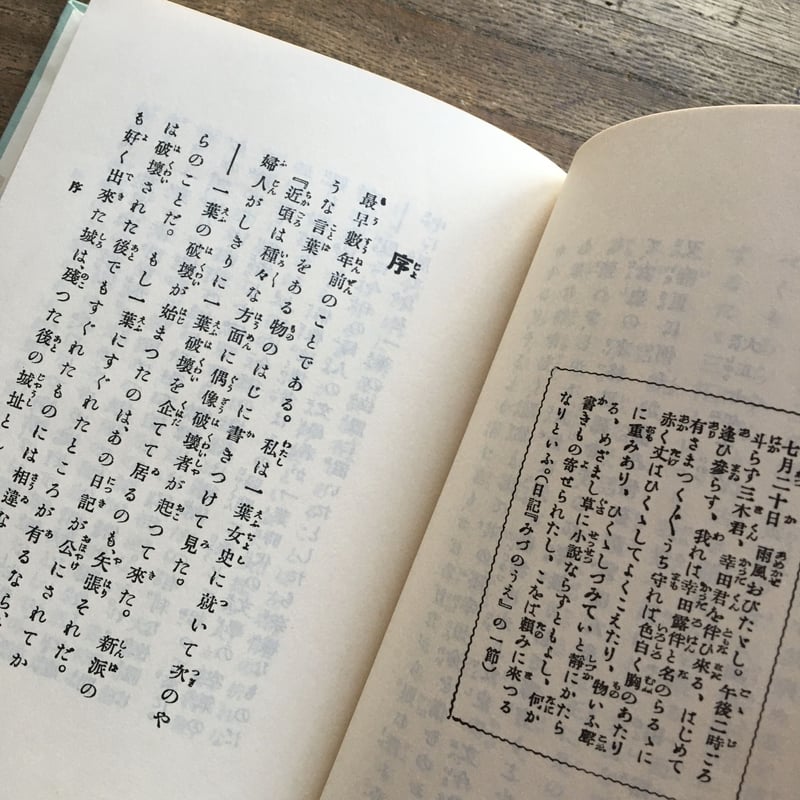 七月二十日　雨風おびたゞし。午後二時ごろ
斗らず三木君、幸田君を伴ひ來る、はじめて
逢ひ參らす、我れは幸田露伴と名のらるゝに
有さまつく〴〵うち守れば色白く胸のあたり
赤く丈はひくゝしてよくこえたり、物いふ聲
に重みあり、ひくゝしづみていと靜にかたら
る、めざまし草に小説ならずともよし、何か
書きもの寄せられたし、こをば頼みに來つる
なりといふ。(日記『みづのうえ』の一節)
序
最早數年前のことである。私は一葉女史に就いて次のや
うな言葉をある物のはじに書きつけて見た。
『近頃は種々な方面に偶像破壞者が起つて來た。新派の
婦人がしきりに一葉破壞を企てて居るのも、矢張それだ。
――一葉の破壞が始まつたのは、あの日記が公にされてか
らのことだ。もし一葉にすぐれたところが有るなら、
は破壞された後でもすぐれたものには相違な
も好く出來た城は殘つた後の城址と
序